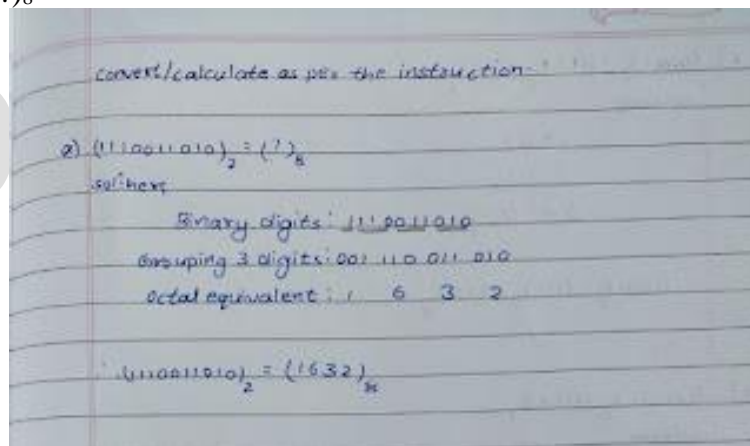 convert/calculate as per the instruction-
a) (1110011010)₂ = (?)₈
solⁿ: here
Binary digits: 1110011010
Grouping 3 digits: 001 110 011 010
Octal equivalent: 1 6 3 2
∴ (1110011010)₂ = (1632)₈